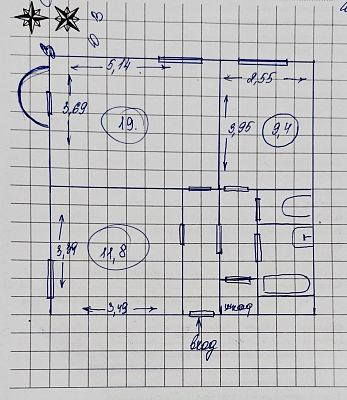 В
Ю
В
5,14
2,55
3,69
19.
3,95
9,4
3,39
11,8
3,49
шкаф
вход